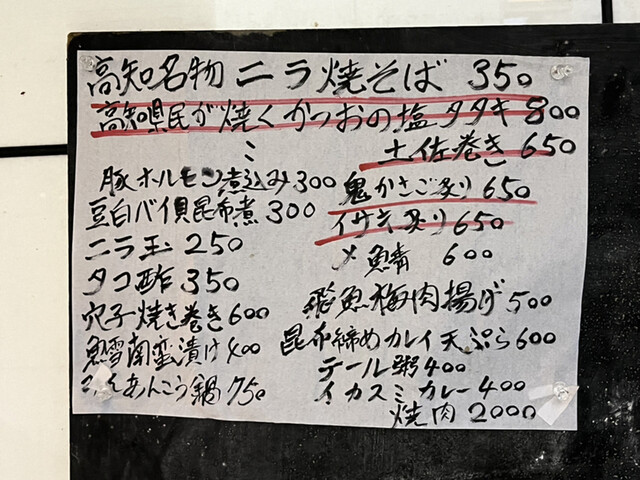 高知名物 ニラ焼そば 350
高知県民が焼くかつおの塩タタキ 800
〃 土佐巻き 650
豚ホルモン煮込み 300
豆白バイ貝昆布煮 300
ニラ玉 250
タコ酢 350
穴子焼き巻き 600
鱈南蛮漬け 400
あんこう鍋 750
鬼かさご炙り 650
イサキ炙り 650
〆鯖 600
飛魚梅肉揚げ 500
昆布締めカレイ天ぷら 600
テール粥 400
イカスミカレー 400
焼肉 2000